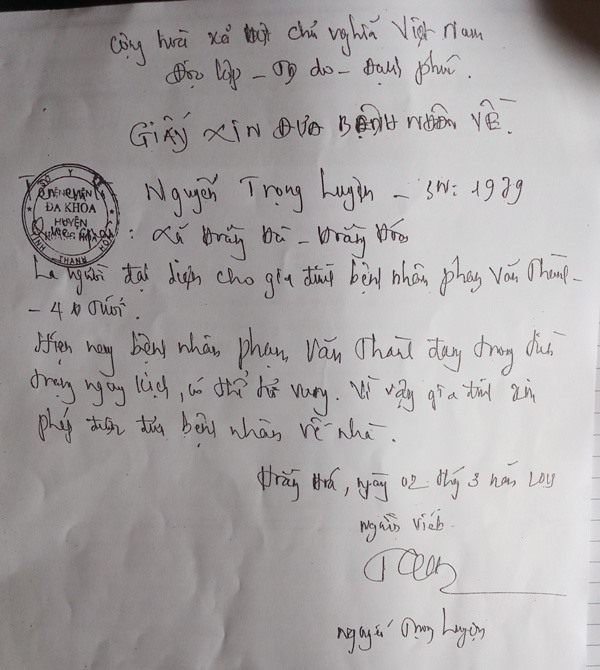 Cộng hoà xã hội chủ nghĩa Việt Nam
Độc lập - Tự do - Hạnh phúc.
GIẤY XIN ĐƯA BỆNH NHÂN VỀ.
SỞ Y TẾ
BỆNH VIỆN
ĐA KHOA
HUYỆN
TỈNH THANH HÓA
Nguyễn Trọng Luyện - SN: 1979
: Xã - Hoằng Hóa
Là người đại diện cho gia đình bệnh nhân phạm Văn Thành -
- 40 tuổi.
Hiện nay bệnh nhân phạm Văn Thành đang trong tình
trạng nguy kịch, có thể tử vong. Vì vậy gia đình xin
phép được đưa bệnh nhân về nhà.
Hoằng Hoá, ngày 02 tháng 3 năm
người viết
Nguyễn Trọng Luyện